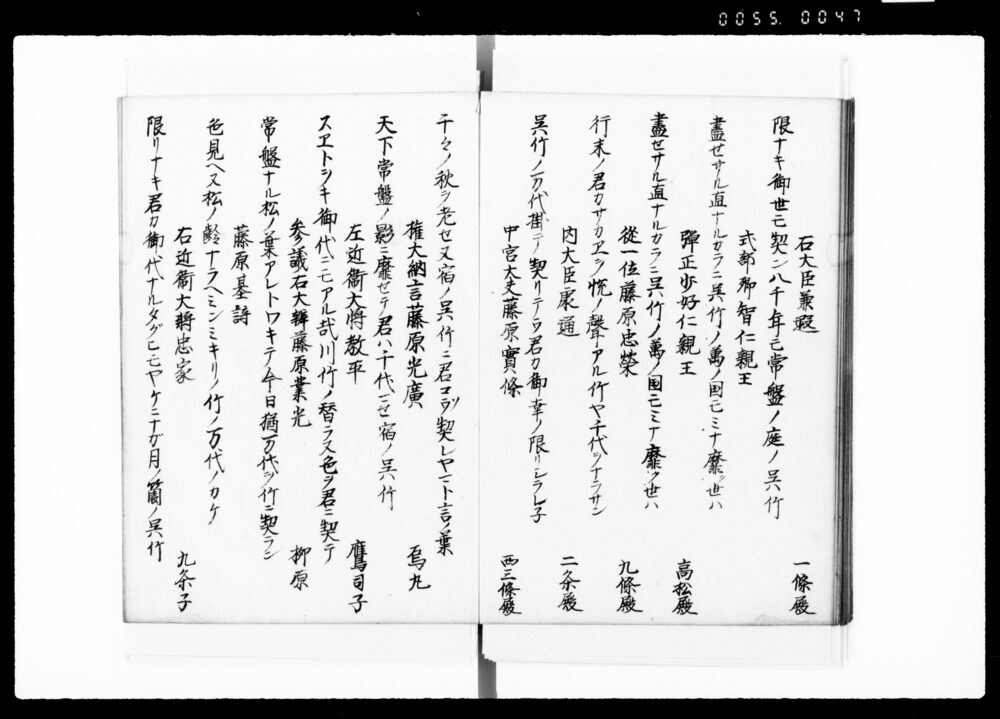 0055.0047
右大臣兼遐 一條殿
限ナキ御世モ契ン八千年モ常盤ノ庭ノ呉竹
式部卿智仁親王
盡せサル直ナルカラニ呉竹ノ萬ノ国モミナ靡ク世ハ
彈正少好仁親王 高松殿
盡せサル直ナルカラニ呉竹ノ萬ノ国モミナ靡ク世ハ
從一位藤原忠榮 九條殿
行末ノ君カサカヱヲ悦ノ聲アル竹ヤ千代ヲナラサン
内大臣康通 二条殿
呉竹ノ万代掛テ契リテヲ君カ御幸ノ限リシラレ子
中宮大夫藤原實條 西三條殿
千々ノ秋ヲ老せヌ宿ノ呉竹ニ君コソ契レヤマト言ノ葉
権大納言藤原光廣 烏丸
天下常盤ノ影ニ靡せテ君ハ千代マせ宿ノ呉竹
左近衞大将教平 鷹司子
スヱトヲキ御代ニモアル哉川竹ノ替ラヌ色ヲ君ニ契テ
参議右大辨藤原業光 柳原
常盤ナル松ノ葉アレトワキテ今日猶万代ヲ竹ニ契ラン
藤原基
色見ヘヌ松ノ齢ナラヘミンミキリノ竹ノ万代ノカケ
右近衞大将忠家 九条子
限リナキ君カ御代ナルタグヒモヤケニナガ月ノ籬ノ呉竹